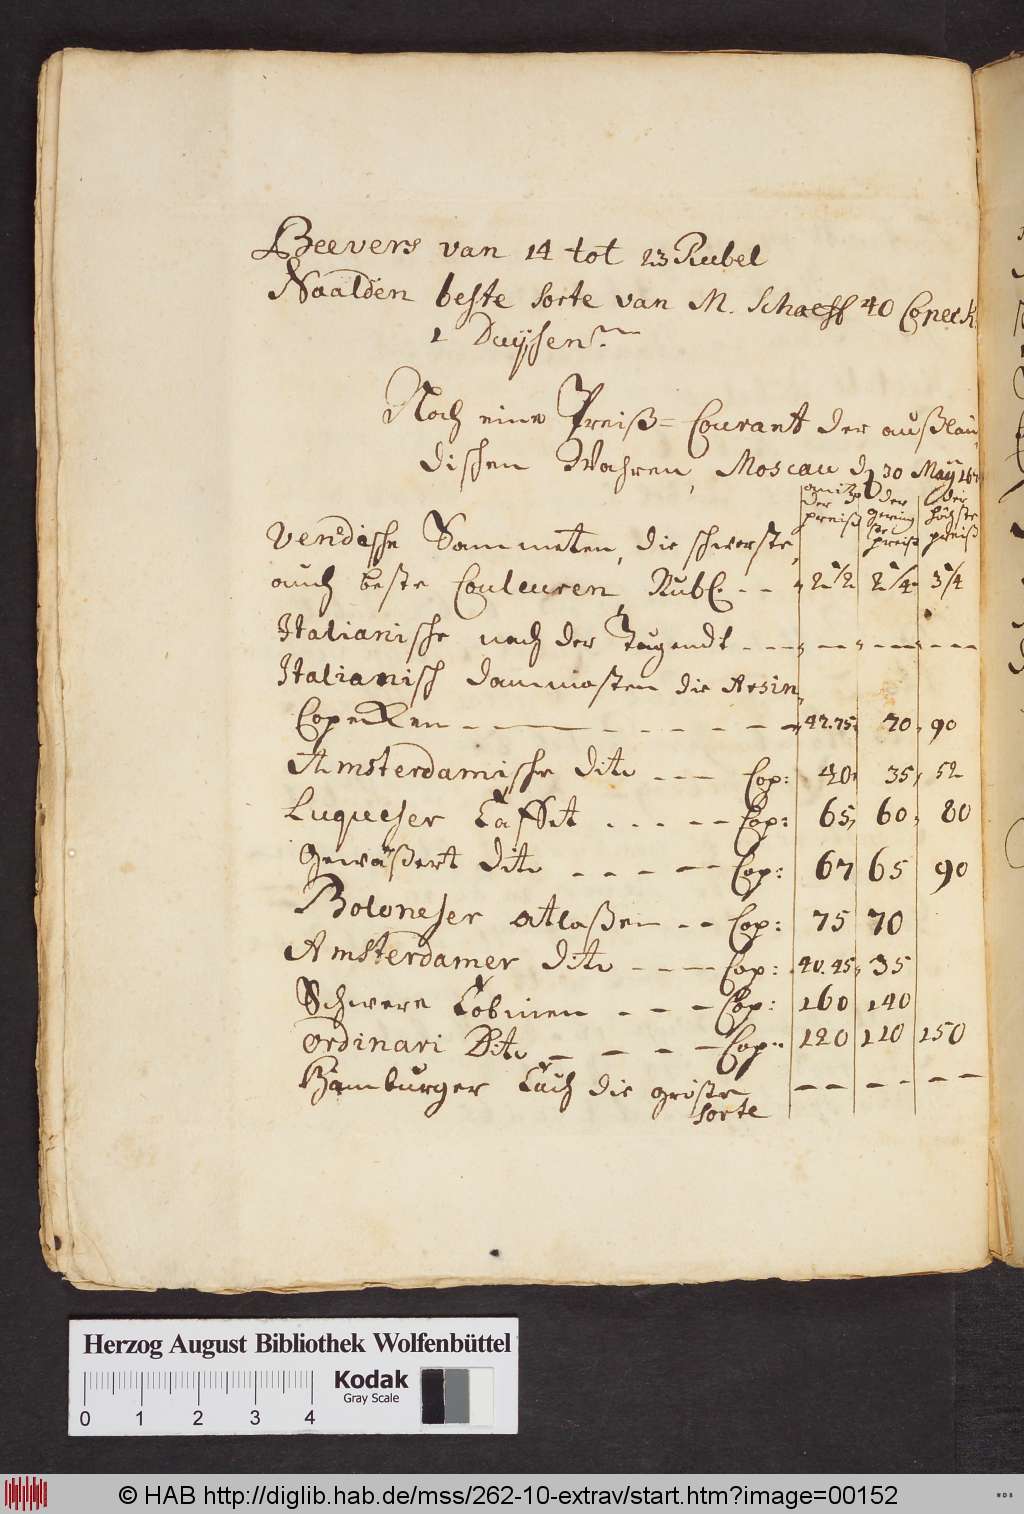 Beevers van 14 tot 23 Rubel
Naalden beste sorte van M. Schaeff 40 Copeck
1 Duÿsen
Noch eine Preiß=Courant der außlän,
dischen Wahren, Moscau d 30 Maÿ
der preiß
der gering ste preiß
der höchste preiß
Venedische Sammeten, die schwerste,
auch beste Couleuren Rubl. - - 2 1/2 2 1/4 3 1/4
Italianische nach der Tugendt - - - - - - - - -
Italianisch dammasten die Arsin,
Copecken - - - - - - 42.75 70 90
Amsterdamische dito - - - Cop: 40 35 52
Luqueser Taffet - - - - - Cop: 65 60 80
gewäßert dito - - - - - Cop: 67 65 90
Boloneser atlaßen - - Cop: 75 70
Amsterdamer dito - - - - Cop: 40.45 35
Schwere Tobinen - - - Cop: 160 140
ordinari Dito - - - - Cop: 120 110 150
Hamburger Tuch die gröste - - - - - -
sorte
Herzog August Bibliothek Wolfenbüttel
Kodak
Gray Scale
0 1 2 3 4
© HAB http://diglib.hab.de/mss/262-10-extrav/start.htm?image=00152